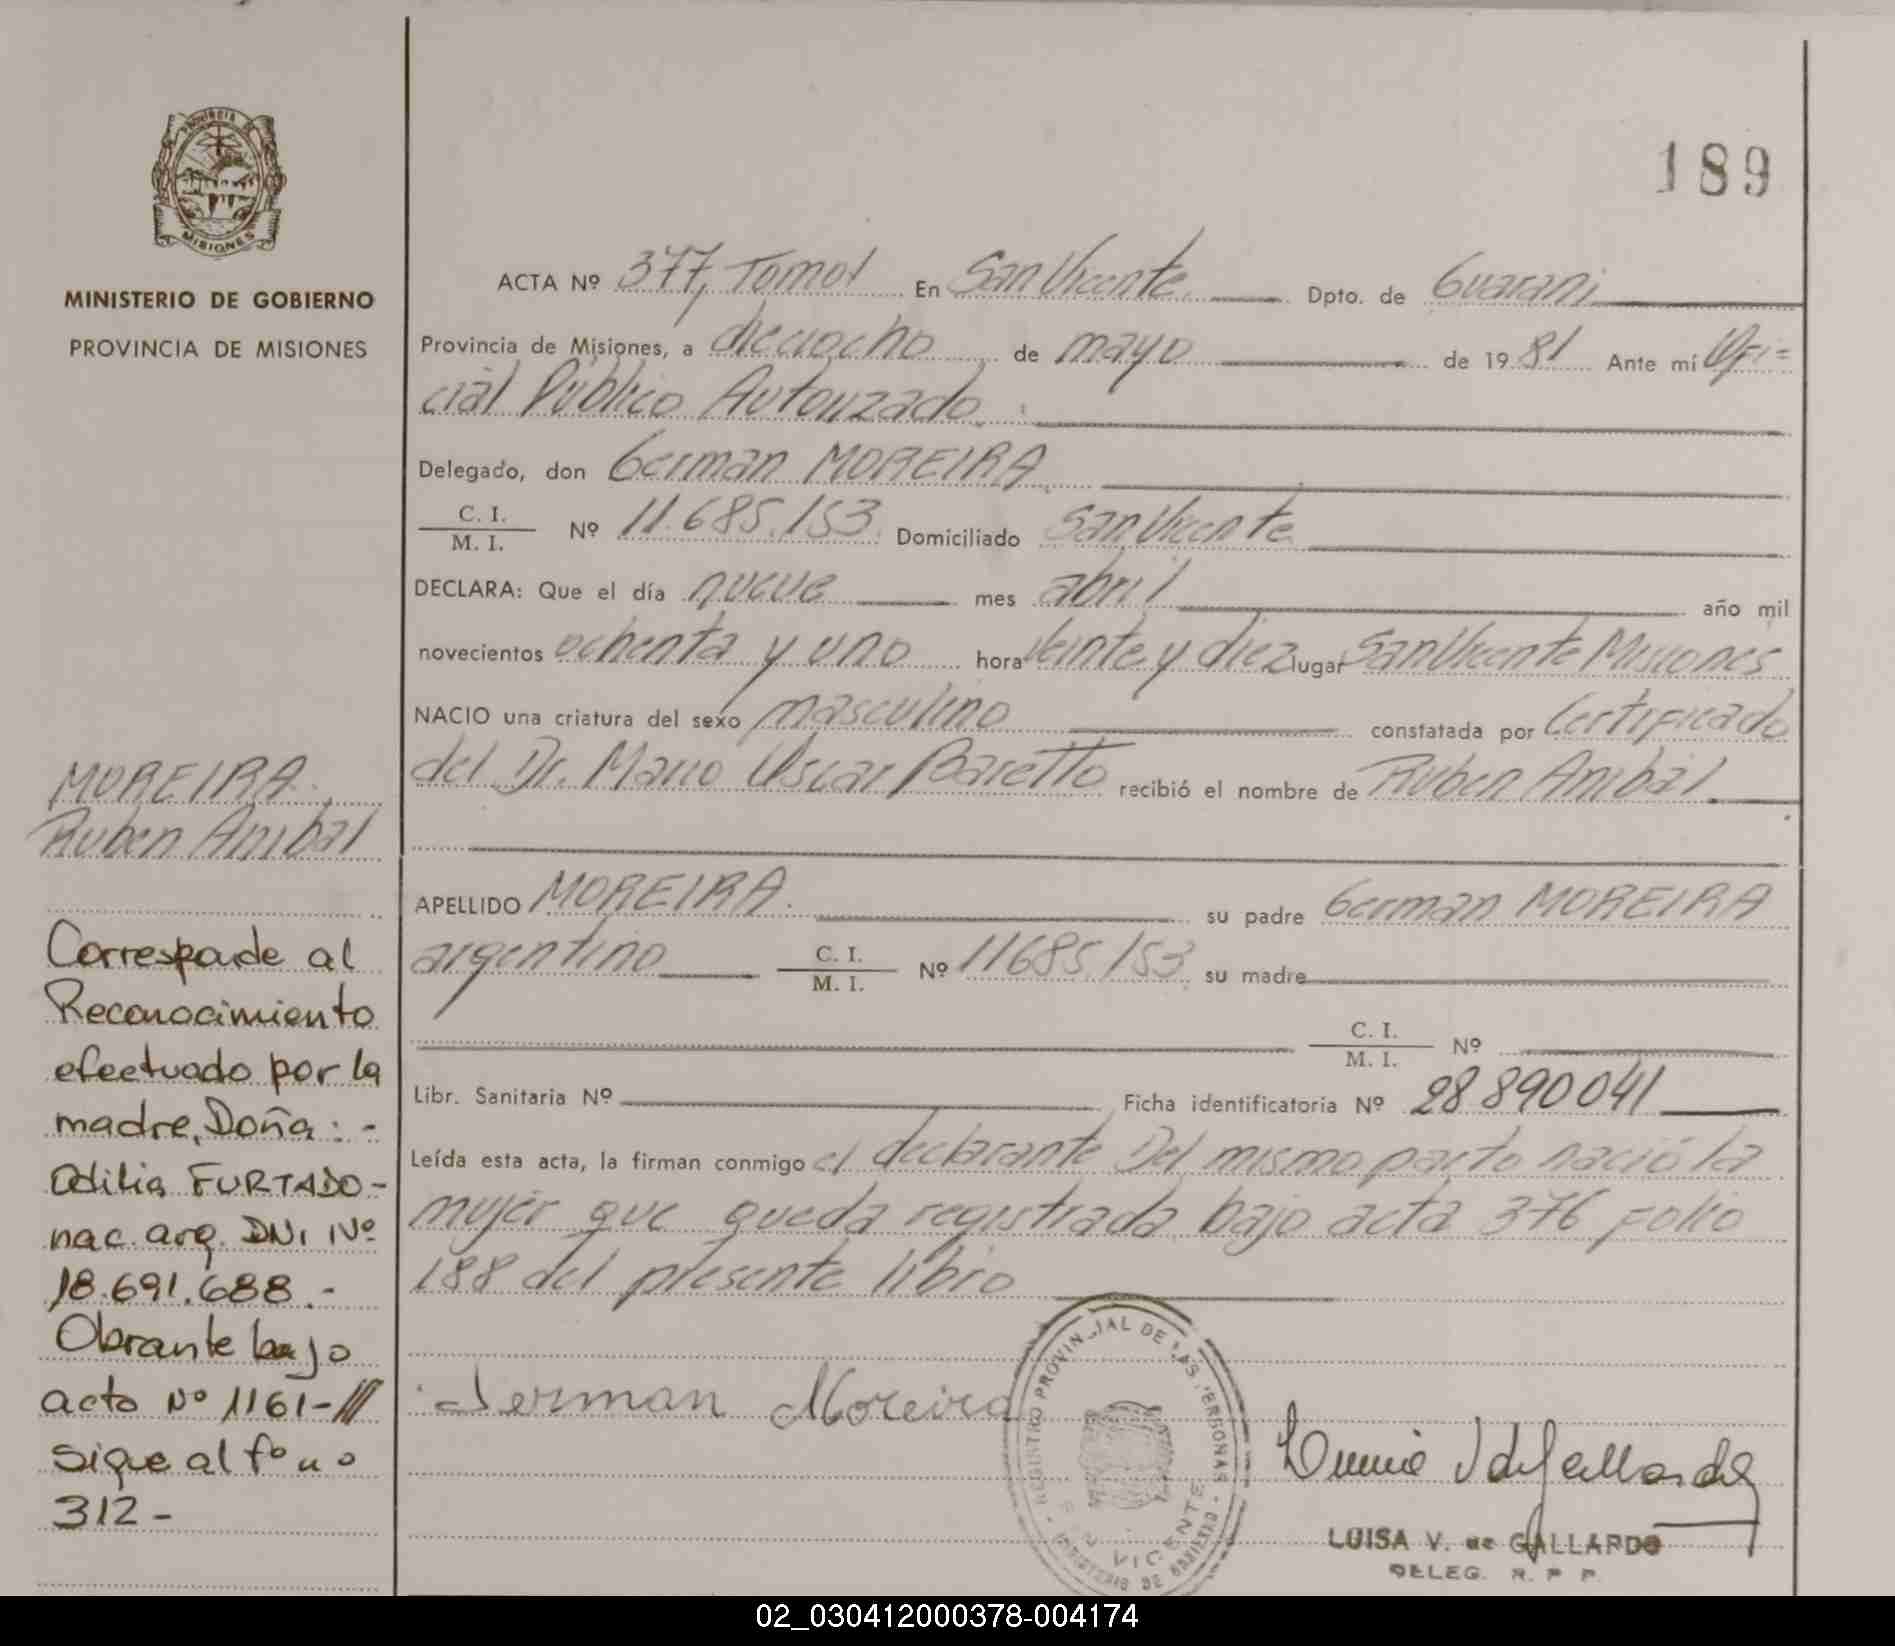 PROVINCIA DE
MISIONES
MINISTERIO DE GOBIERNO
PROVINCIA DE MISIONES
189
ACTA Nº 377, Tomo I En San Vicente Dpto. de Guarani
Provincia de Misiones, a dieciocho de mayo de 1981 Ante mí Ofi=
cial Público Autorizado.
Delegado, don German MOREIRA
C. I.
M. I.
Nº 11.685.153 Domiciliado San Vicente
DECLARA: Que el día nueve mes abril año mil
novecientos ochenta y uno hora veinte y diez lugar San Vicente Misiones
NACIO una criatura del sexo masculino constatada por Certificado
del Dr. Mario Oscar Baretto recibió el nombre de Ruben Anibal
APELLIDO MOREIRA. su padre German MOREIRA
argentino C. I.
M. I.
Nº 11685.153 su madre
C. I.
M. I.
Nº
Libr. Sanitaria Nº Ficha identificatoria Nº 28890041
Leída esta acta, la firman conmigo el declarante Del mismo parto nació la
mujer que queda registrada bajo acta 376 folio
188 del presente libro
German Moreira
REGISTRO PROVINCIAL DE LAS PERSONAS
SAN VICENTE
MINISTERIO DE
LUISA V. de GALLARDO
DELEG. R. P. P.
MOREIRA
Ruben Anibal
Corresponde al
Reconocimiento
efectuado por la
madre, Doña: -
Odilia FURTADO-
nac. arg. DNI Nº
18.691.688.-
Obrante bajo
acta Nº 1161-///
Sigue al fº nº
312-
02_030412000378-004174